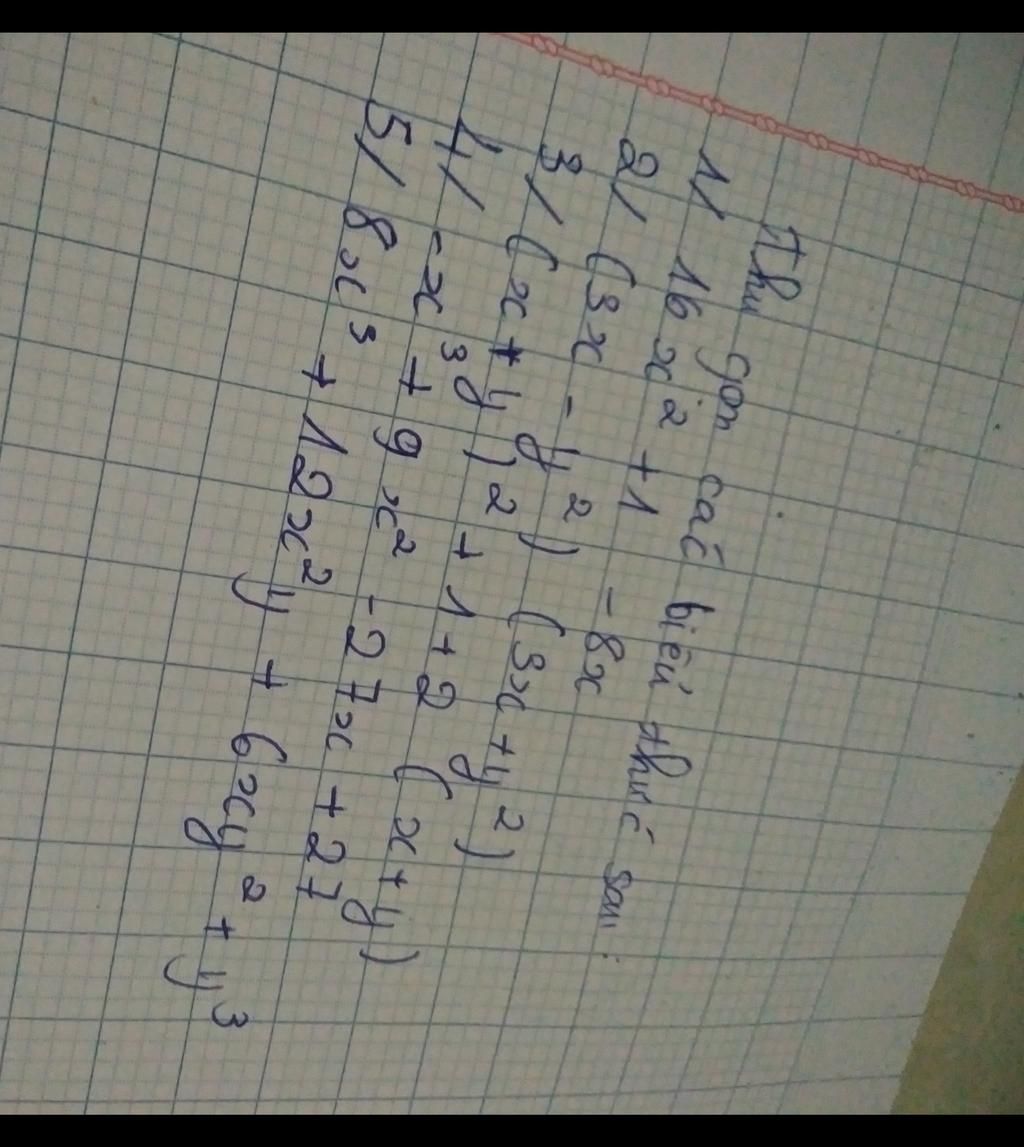 Thu gọn các biểu thức sau:
1/ 16x² + 1 - 8x
2/ (3x - y²) (3x + y²)
3/ (x + y)² + 1 + 2 (x + y)
4/ -x³ + 9x² - 27x + 27
5/ 8x³ + 12x²y + 6xy² + y³